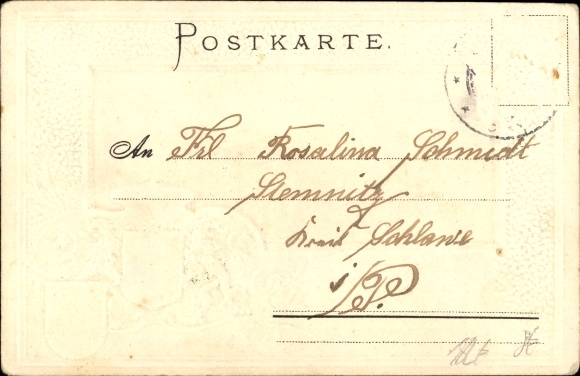 POSTKARTE.
An Frl Rosalina Schmidt
Stemnitz
Kreis Schlawe
i/P.